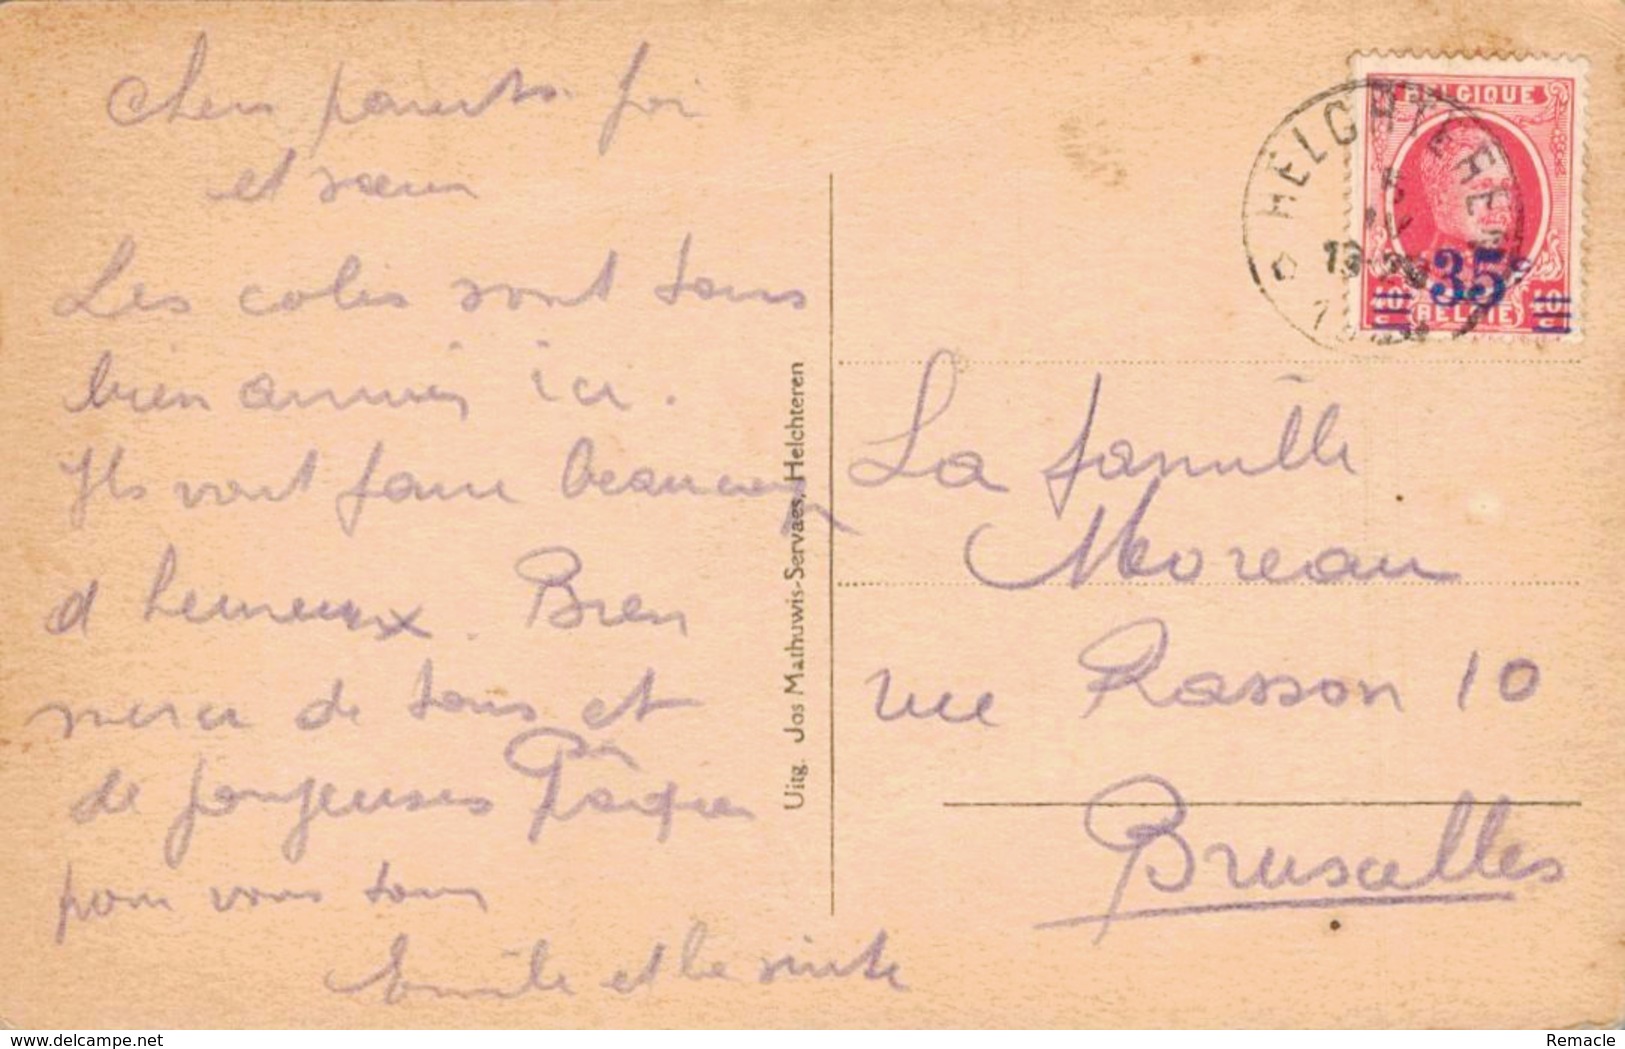 Chers parents foi
et sœur
Les colis sont tous
bien arrivés ici.
Ils vont faire beaucoup
d heureux. Bien
merci de tous et
de joyeuses Pâques
pour vous tous
Emile et la suite
Uitg. Jos Mathuwis-Servaes, Helchteren
BELGIQUE
HELCHTEREN
35c
40 c
40 c
BELGIË
La famille
Moreau
rue Rasson 10
Bruxelles
delcampe.net
Remacle